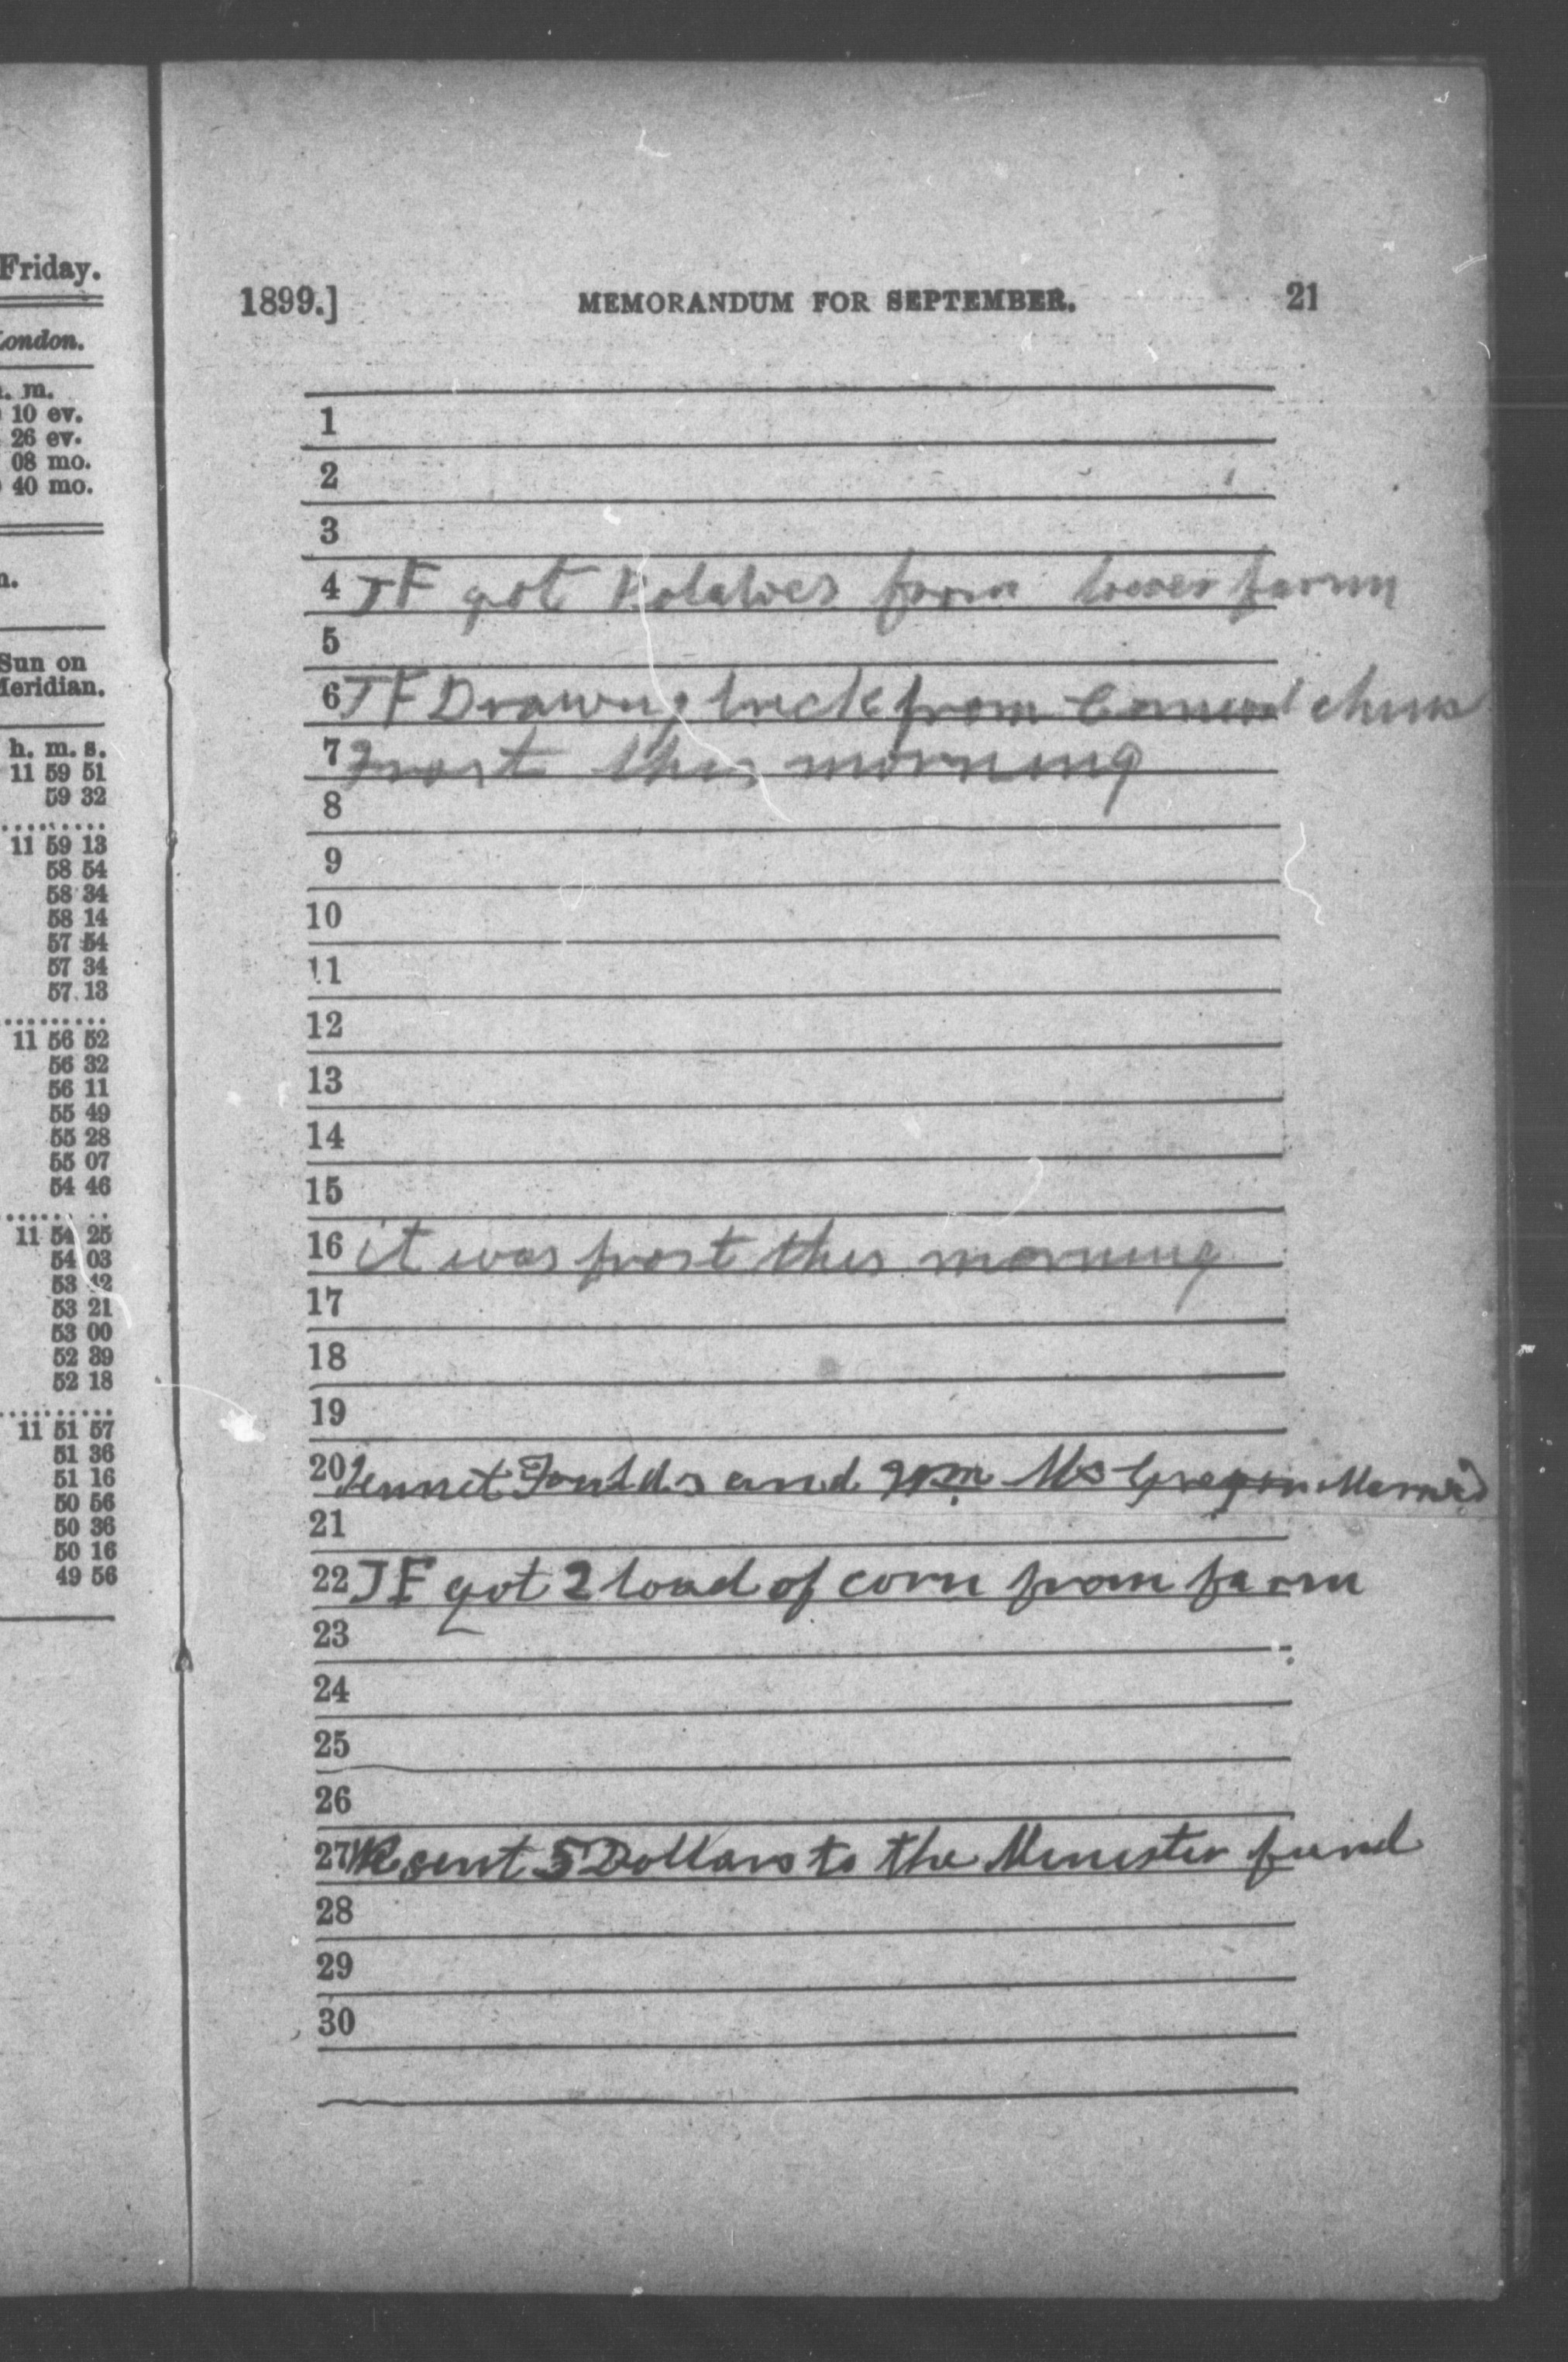 Friday.
London.
. m.
10 ev.
26 ev.
08 mo.
40 mo.
n.
Sun on
Meridian.
h. m. s.
11 59 51
59 32
11 59 13
58 54
58 34
58 14
57 54
57 34
57 13
11 56 52
56 32
56 11
55 49
55 28
55 07
54 46
11 54 25
54 03
53 42
53 21
53 00
52 39
52 18
11 51 57
51 36
51 16
50 56
50 36
50 16
49 56
1899.] MEMORANDUM FOR SEPTEMBER. 21
1
2
3
4 JF got Potatoes from lower farm
5
6 JF Drawing brick from
7 Frost this morning
8
9
10
11
12
13
14
15
16 it was frost this morning
17
18
19
20 Jennet Foulds and Wm McGregor Married
21
22 JF got 2 load of corn from farm
23
24
25
26
27 sent 5 Dollars to the Minester fund
28
29
30